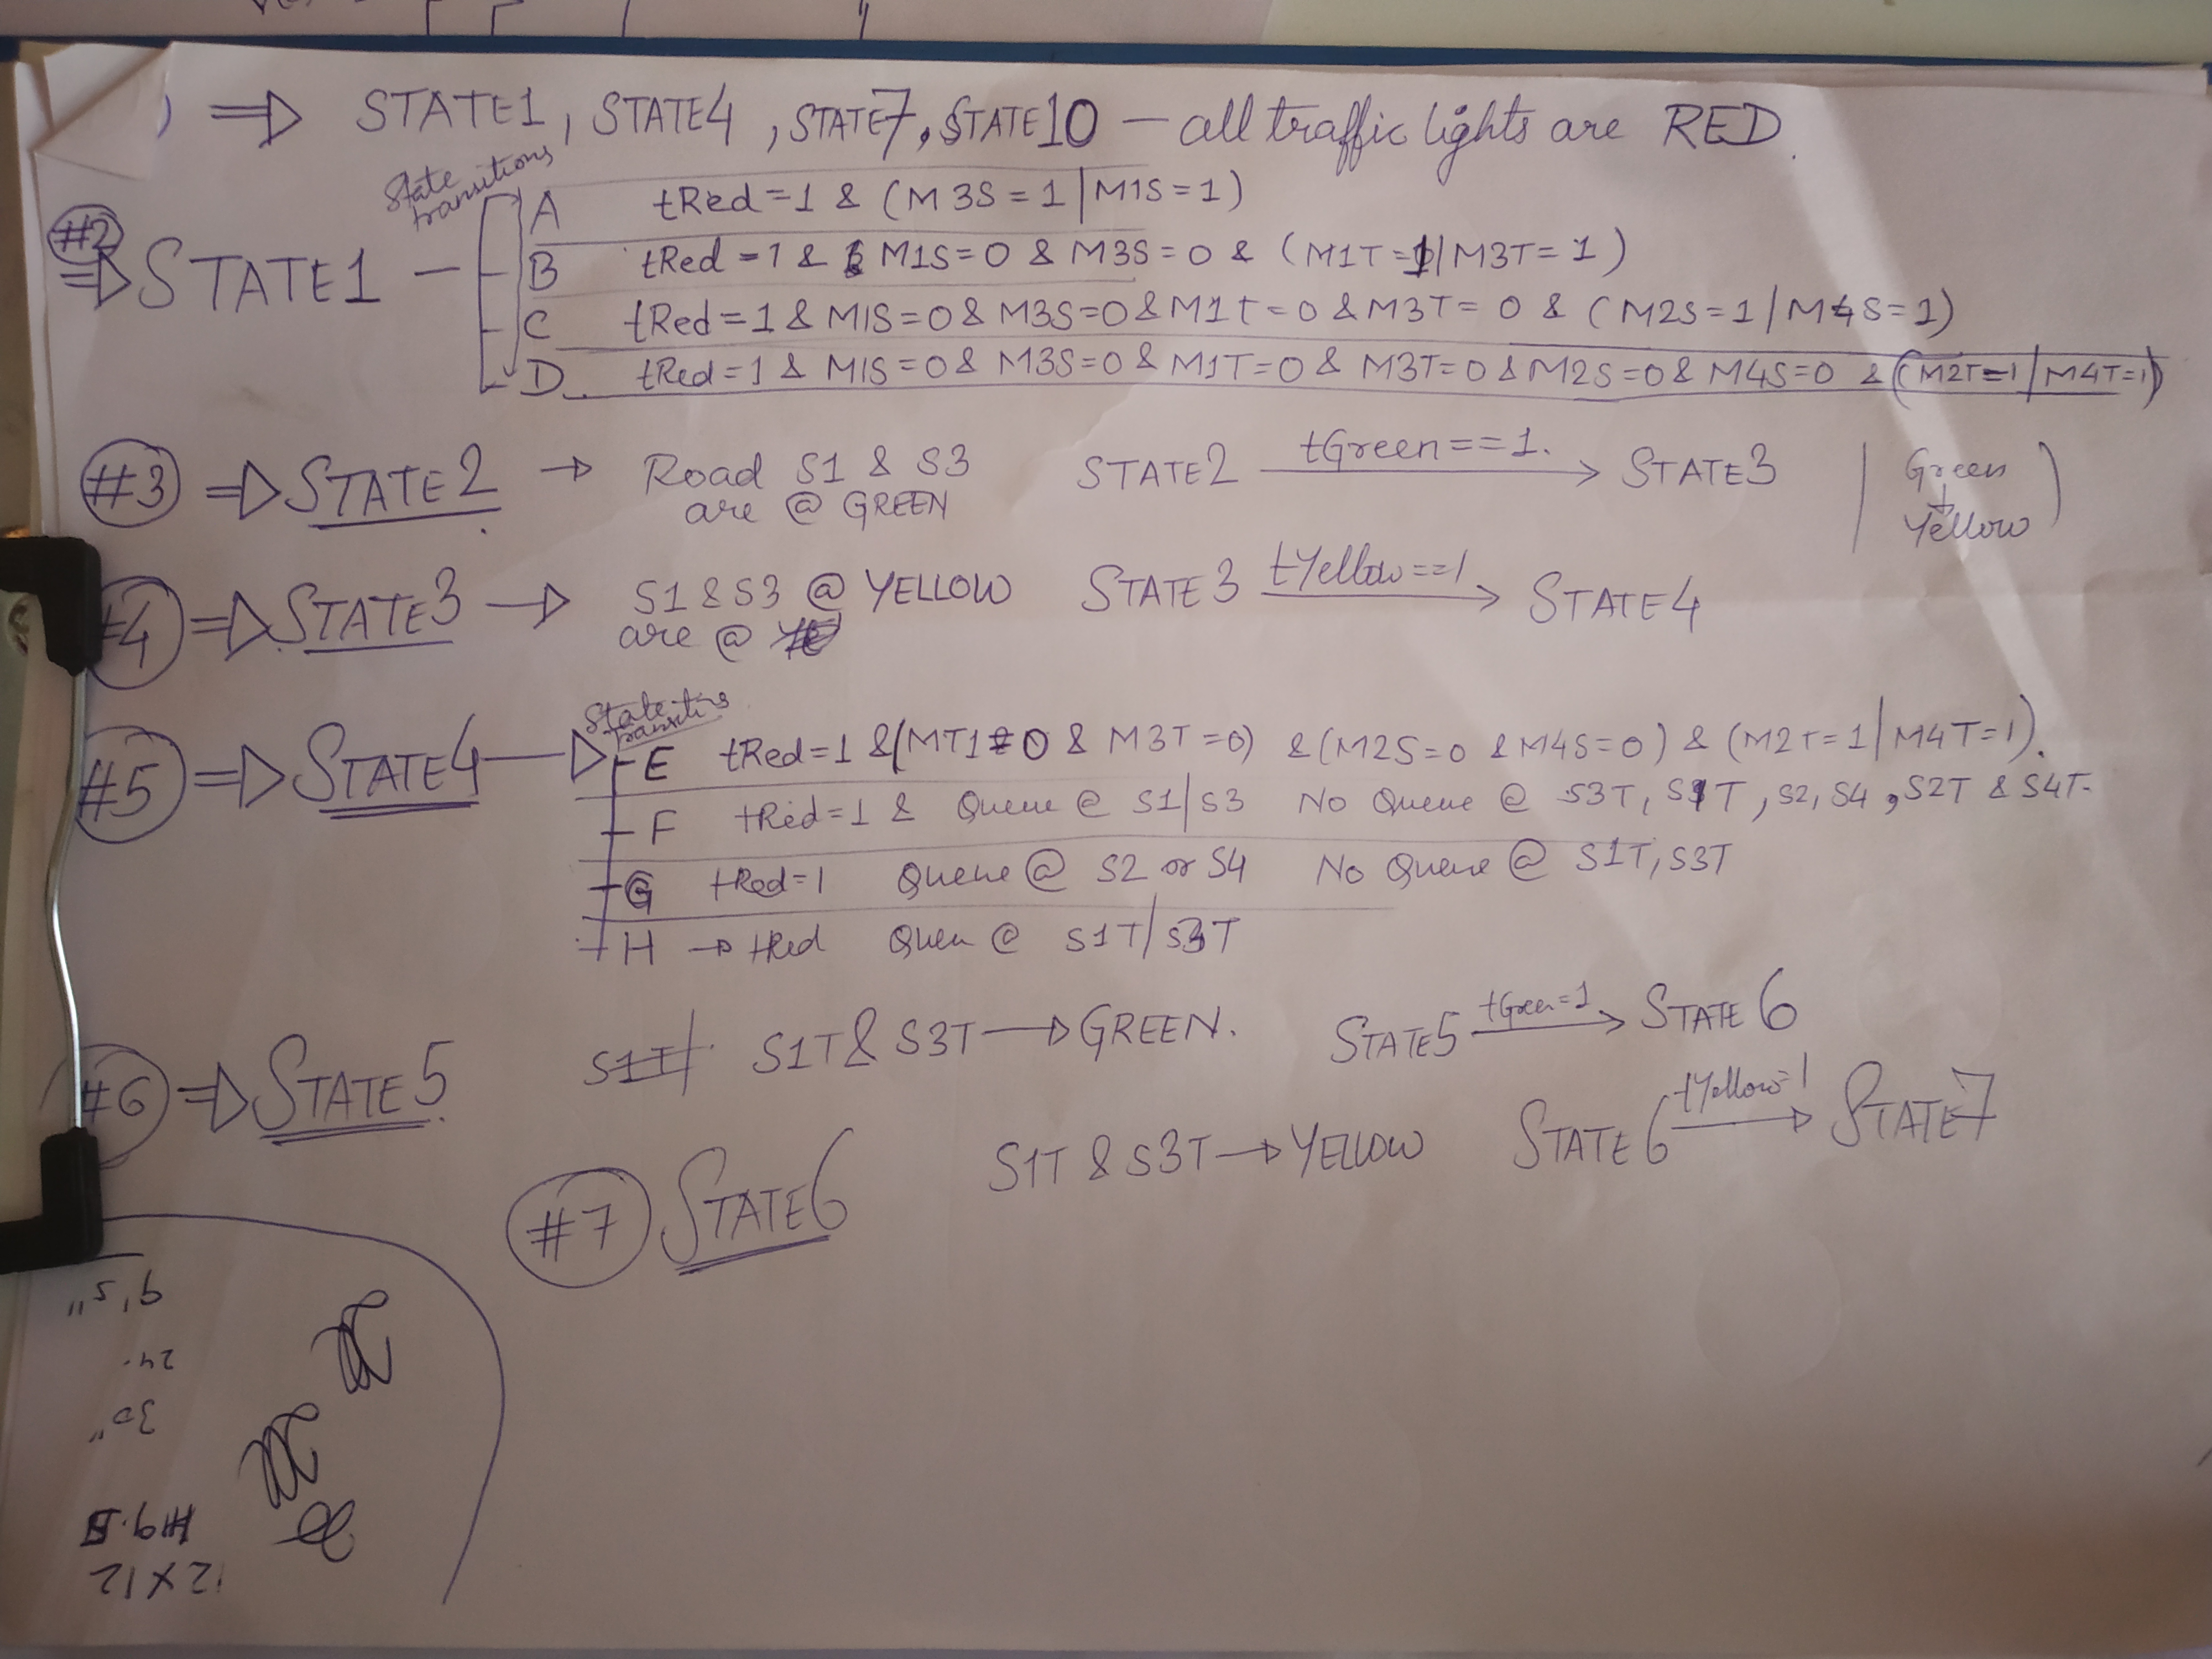 ⇒ STATE1, STATE4, STATE7, STATE10 — all traffic lights are RED.
State transitions
#2 ⇒ STATE1 —
A tRed=1 & (M3S=1|M1S=1)
B tRed=1 & M1S=0 & M3S=0 & (M1T=1|M3T=1)
C tRed=1 & M1S=0 & M3S=0 & M1T=0 & M3T=0 & (M2S=1/M4S=1)
D. tRed=1 & M1S=0 & M3S=0 & M1T=0 & M3T=0 & M2S=0 & M4S=0 & (M2T=1/M4T=1)
#3 ⇒ STATE2 → Road S1 & S3 are @ GREEN STATE2 tGreen==1. → STATE3 | Green ↓ Yellow)
#4 ⇒ STATE3 → S1 & S3 @ YELLOW STATE3 tYellow==1 → STATE4
are @
State transitins
#5 ⇒ STATE4 →
E tRed=1 & (MT1=0 & M3T=0) & (M2S=0 & M4S=0) & (M2T=1|M4T=1).
F tRed=1 & Queue @ S1/S3 No Queue @ S3T, S1T, S2, S4, S2T & S4T.
G tRed=1 Queue @ S2 or S4 No Queue @ S1T, S3T
H → tRed Queu @ S1T/S3T
#6 ⇒ STATE5 S1T/ S1T & S3T → GREEN. STATE5 tGreen=1 → STATE6
#7 STATE6 S1T & S3T → YELLOW STATE6 tYellow=1 → STATE7
12 X 12
30"
24
9'5"